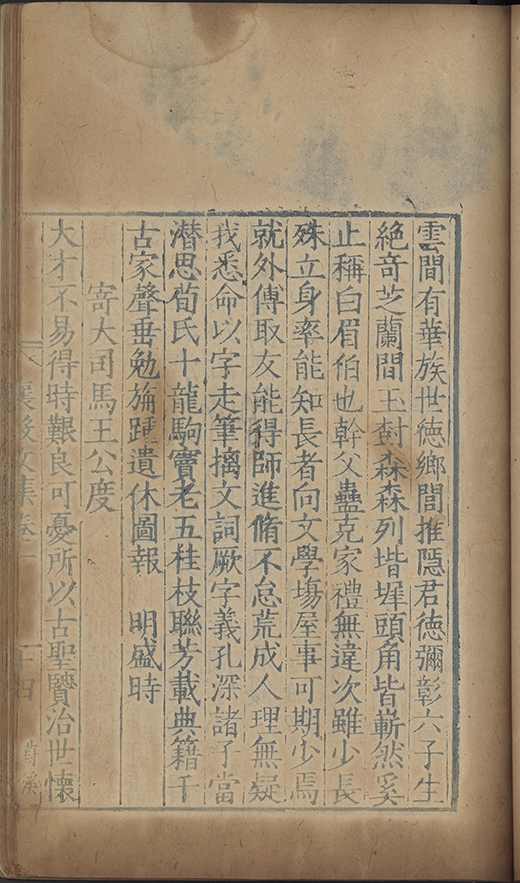 雲間有華族世徳鄉閭推隱君徳彌彰六子生
絶竒芝蘭間玉樹森森列堦墀頭角皆嶄然奚
止稱白眉伯也幹父蠱克家禮無違次雖少長
殊立身率能知長者向文學塲屋事可期少焉
就外傅取友能得師進脩不怠荒成人理無疑
我悉命以字走筆摛文詞厥字義孔深諸子當
潜思荀氏十龍駒竇老五桂枝聯芳載典籍千
古家聲垂勉旃踵遺休圖報　明盛時
寄大司馬王公度
大才不易得時艱良可憂所以古聖賢治世懷
襄毅文集卷一
十四